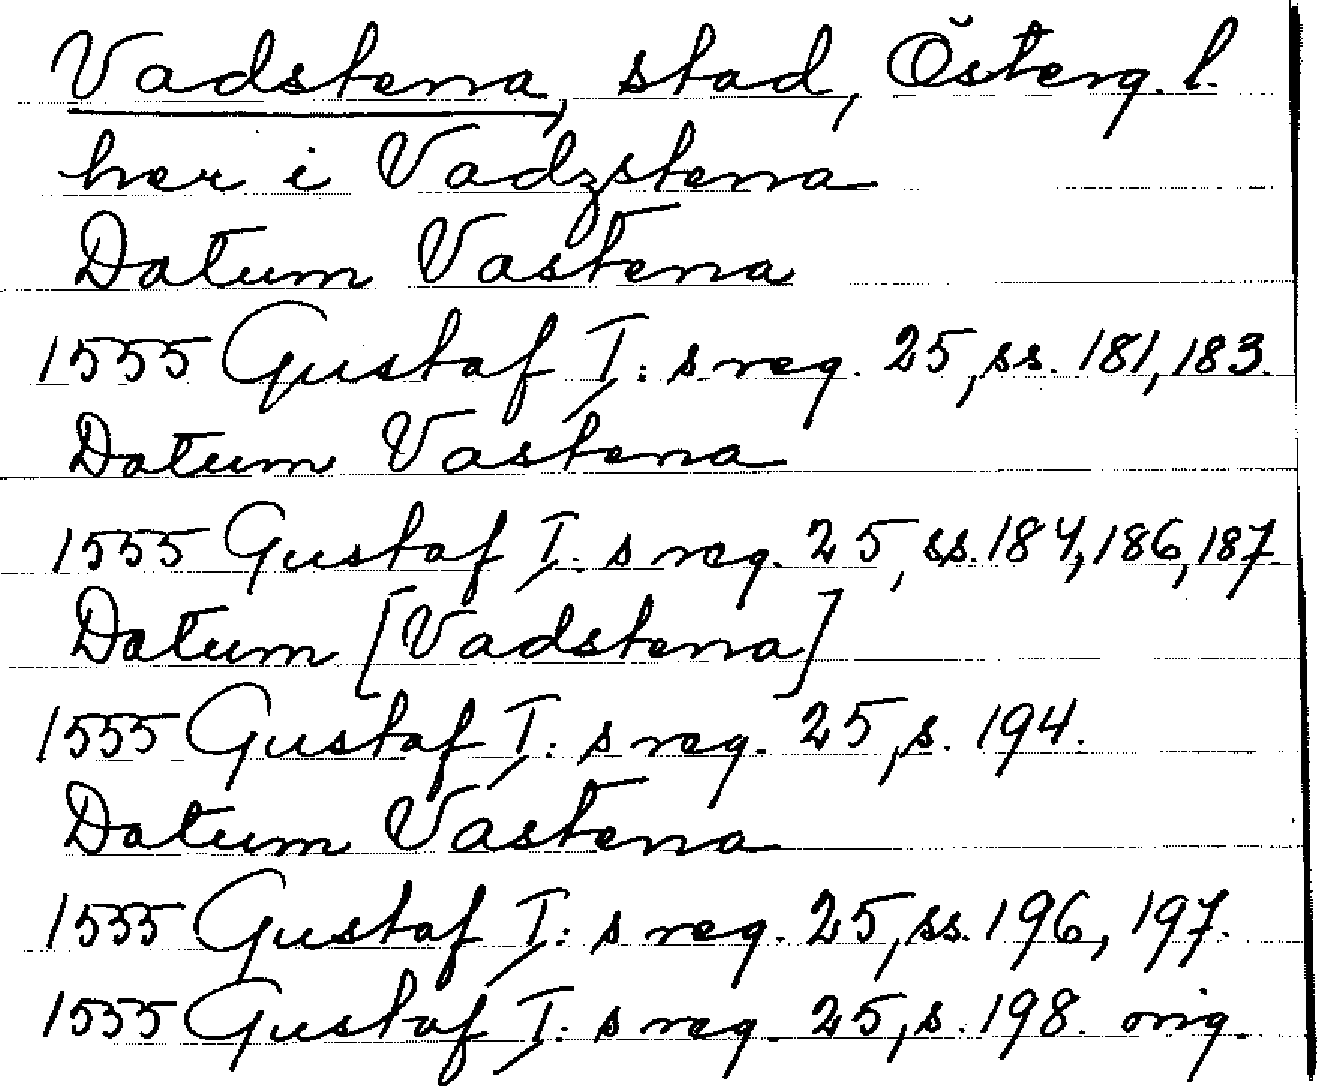 Vadstena, stad, Österg. l.
her i Vadzstena
Datum Vastena
1555 Gustaf I: s reg. 25, ss. 181, 183.
Datum Vastena
1555 Gustaf I: s reg. 25, ss. 184, 186, 187.
Datum [Vadstena]
1555 Gustaf I: s reg. 25, s. 194.
Datum Vastena
1555 Gustaf I: s reg. 25, ss. 196, 197.
1555 Gustaf I: s reg. 25, s. 198. orig.